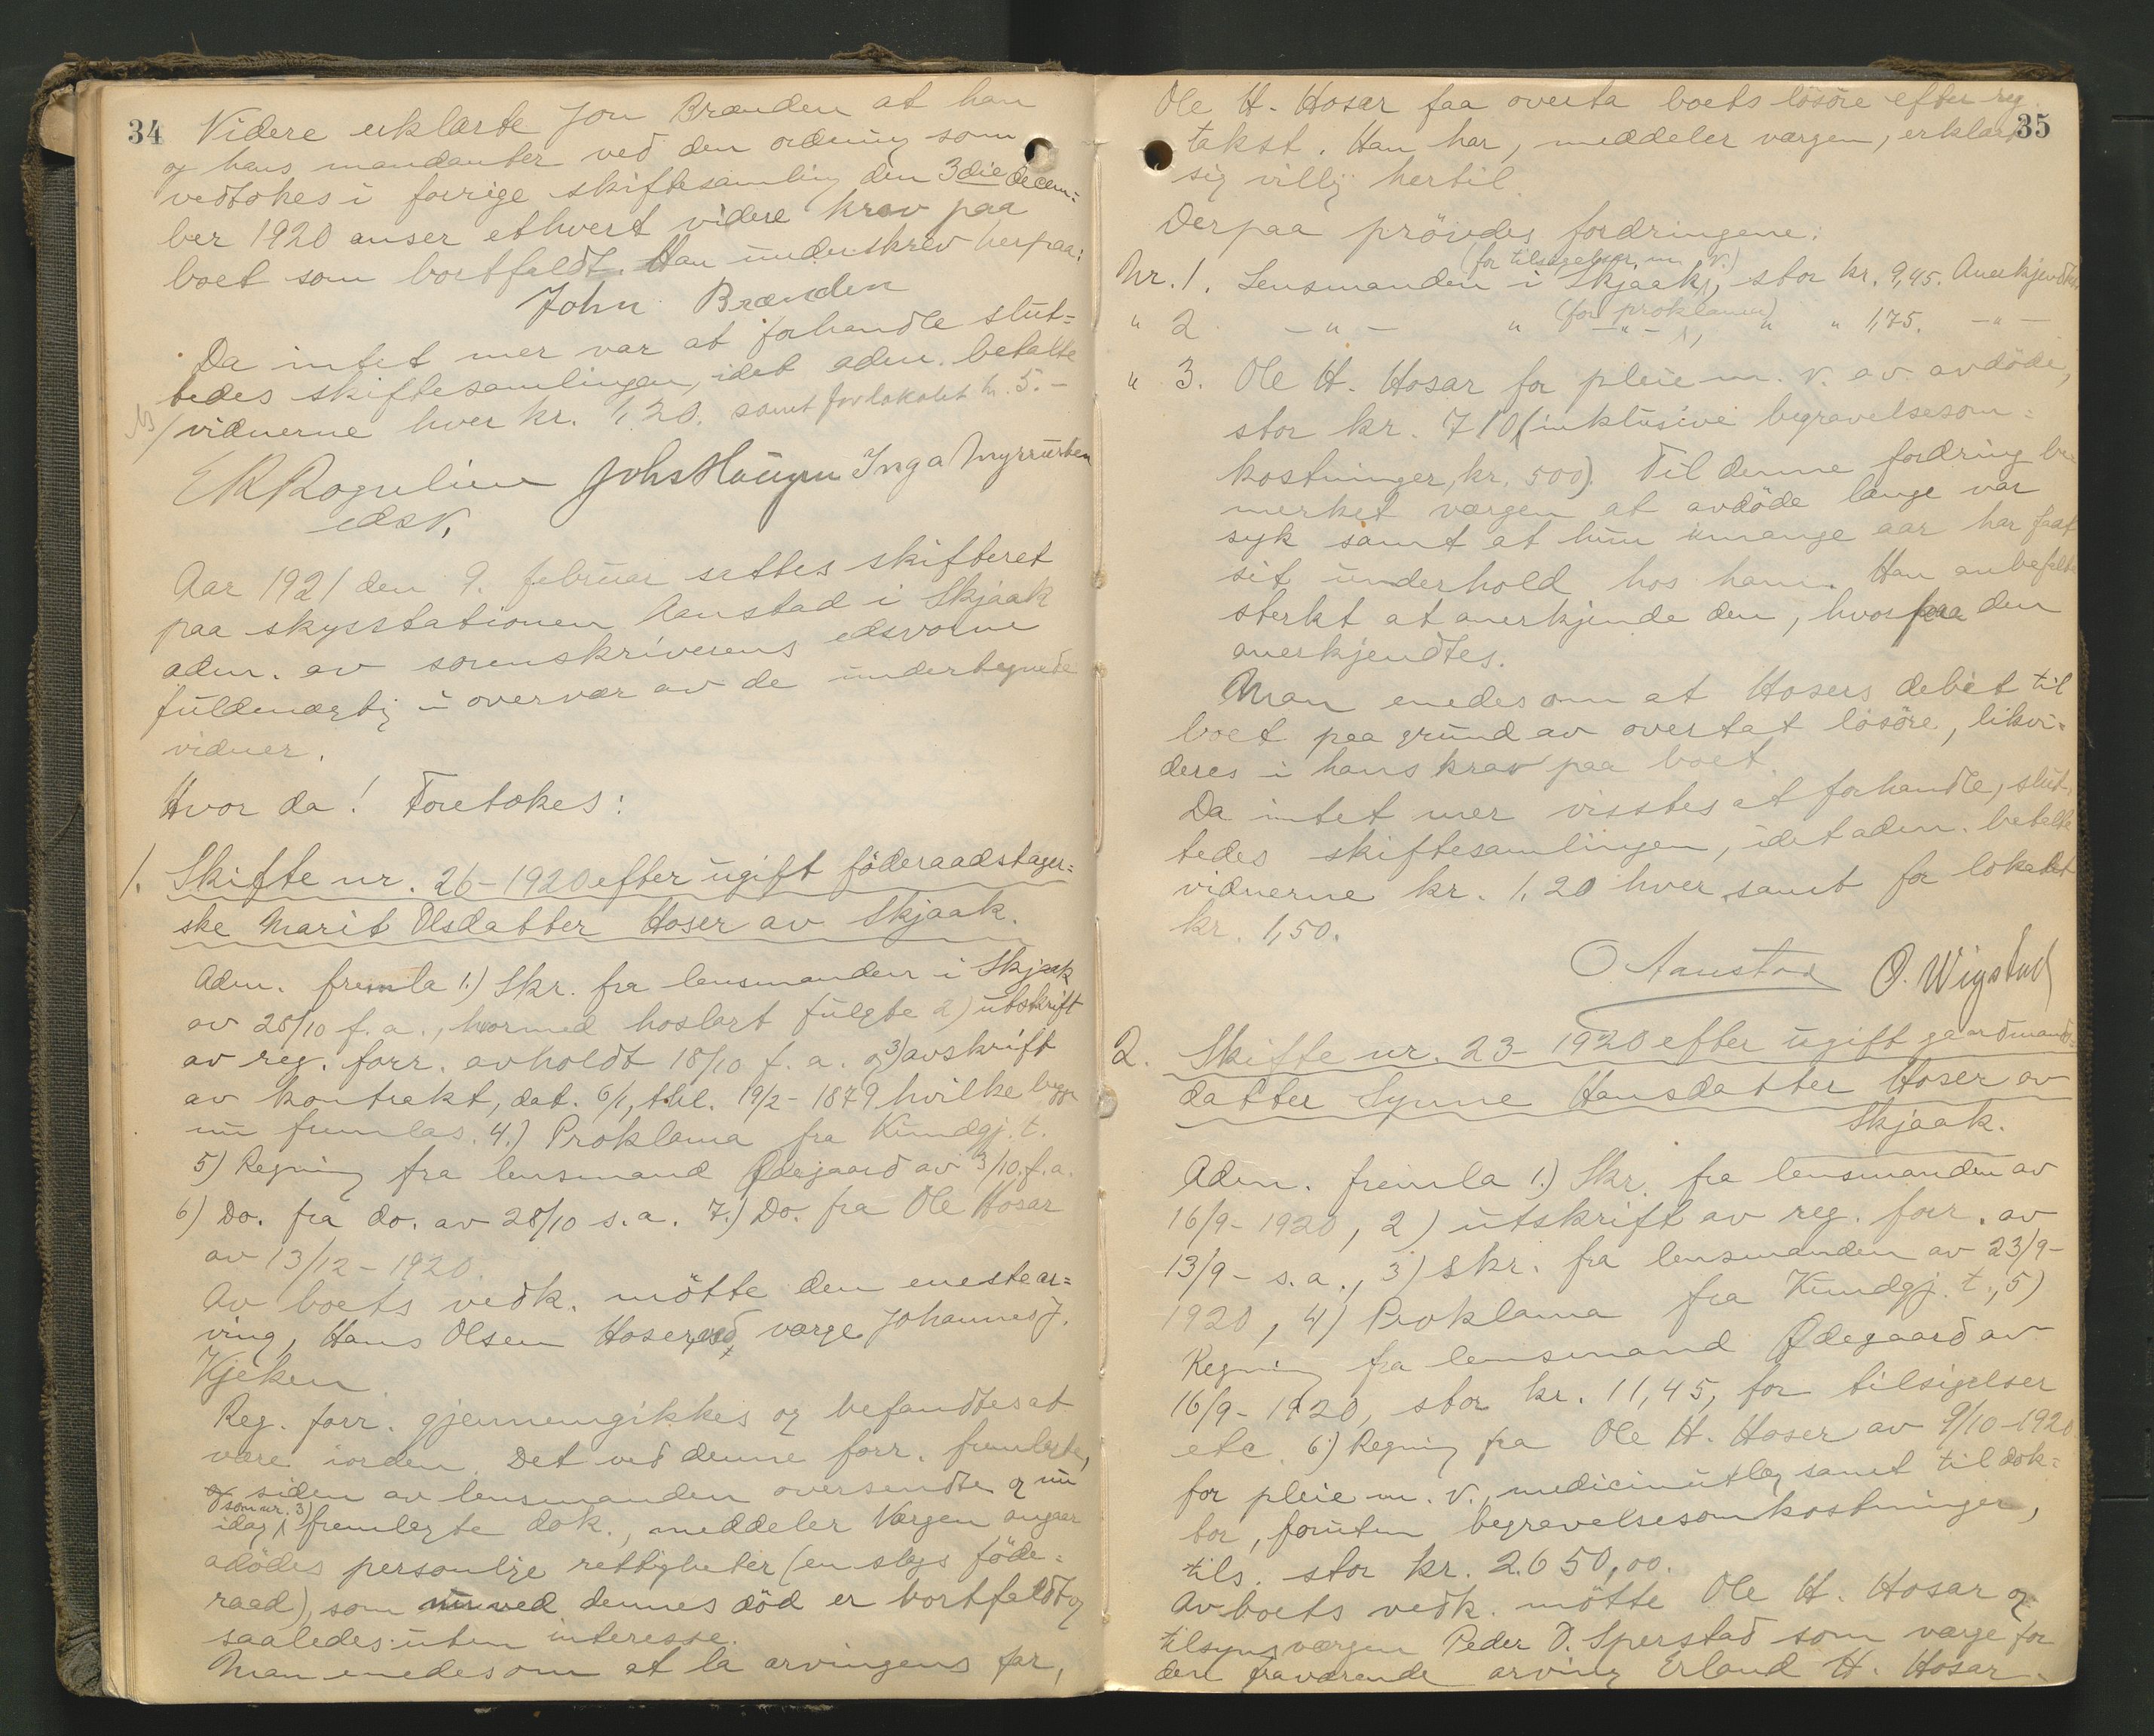 34
Videre erklærte Jon Brænden at han
og hans mandanter ved den ordning som
vedtokes i forrige skiftesamling den 3die decem=
ber 1920 anser ethvert videre krav paa
boet som bortfaldt. Han underskrev herpaa:
John Brænden
Da intet mer var at forhandle slut=
tedes skiftesamlingen, idet adm. betalte
vidnerne hver kr. 1,20. samt for lokalet kr. 5.-
Johs Haugen Inga
edsv.
Aar 1921 den 9. februar sattes skifteret
paa skysstationen Aanstad i Skjaak
adm. av sorenskriverens edsvorne
fuldmægtig i overvær av de undertegnede
vidner.
Hvor da! Foretokes:
1. Skifte nr. 26-1920 efter ugift föderaadstager=
ske Marit Olsdatter Hoser av Skjaak.
Adm. fremla 1.) Skr. fra lensmanden i Skjaak
av 28/10 f.a., hvormed hoslagt fulgte 2) utskrift
av reg. forr. avholdt 18/10 f.a. og 3) avskrift
av kontrakt, dat. 6/1, thl. 19/2-1879 hvilke begge
nu fremlas. 4.) Proklama fra Kundgj. t.
5) Regning fra lensmand Ødegaard av 3/10. f.a.
6) Do. fra do. av 28/10 s.a. 7.) Do. fra Ole Hosar
av 13/12-1920.
Av boets vedk. mötte den eneste ar=
ving, Hans Olsen Hoser, ved værge Johannes J.
Kjeken.
Reg. forr. gjennemgikkes og befandtes at
være iorden. Det ved denne forr. fremlagte,
og siden av lensmanden oversendte og nu
idag (som nr. 3) fremlagte dok., meddeler Værgen angaar
avdödes personlige rettigheter (en slags föde=
raad), som ved dennes död er bortfaldt og
saaledes uten interesse.
Man enedes om at la arvingens far,
35
Ole H. Hosar faa overta boets lösöre efter reg.
takst. Han har, meddeler værgen, erklært
sig villig hertil.
Derpaa prövedes fordringene:
Nr. 1. Lensmanden i Skjaak (for tilsigelser m. v.), stor kr. 9,45. Anerkjendtes
" 2 -"- " -"- (for proklama), " " 1,75. -"-
" 3. Ole H. Hosar for pleie m. v. av avdöde,
stor kr. 710 (inklusive begravelsesom=
kostninger, kr. 500). Til denne fordring be
merket værgen at avdöde længe var
syk samt at hun i mange aar har faat
sit underhold hos ham. Han anbefalte
sterkt at anerkjende den, hvorpaa den
anerkjendtes.
Man enedes om at Hosers debet til
boet paa grund av overtat lösöre, likvi=
deres i hans krav paa boet.
Da intet mer visstes at forhandle, slut=
tedes skiftesamlingen, idet adm. betalte
vidnerne kr. 1,20 hver samt for lokalet
kr. 1,50.
O Aanstad O. Wigstad
2. Skifte nr. 23-1920 efter ugift gaardmands=
datter Synne Hansdatter Hoser av
Skjaak.
Adm. fremla 1.) Skr. fra lensmanden av
16/9-1920, 2) utskrift av reg. forr. av
13/9- s.a., 3) skr. fra lensmanden av 23/9-
1920, 4) Proklama fra Kundgj. t., 5)
Regning fra lensmand Ødegaard av
16/9-1920, stor kr. 11,45, for tilsigelser
etc. 6.) Regning fra Ole H. Hoser av 9/10-1920
for pleie m. v., medicinutlæg samt til dok=
tor, foruten begravelsesomkostninger,
tils. stor kr. 2.650,00.
Av boets vedk. mötte Ole H. Hosar og
tilsynsværgen Peder O. Sperstad som værge for
den fraværende arving Erland H. Hosar.